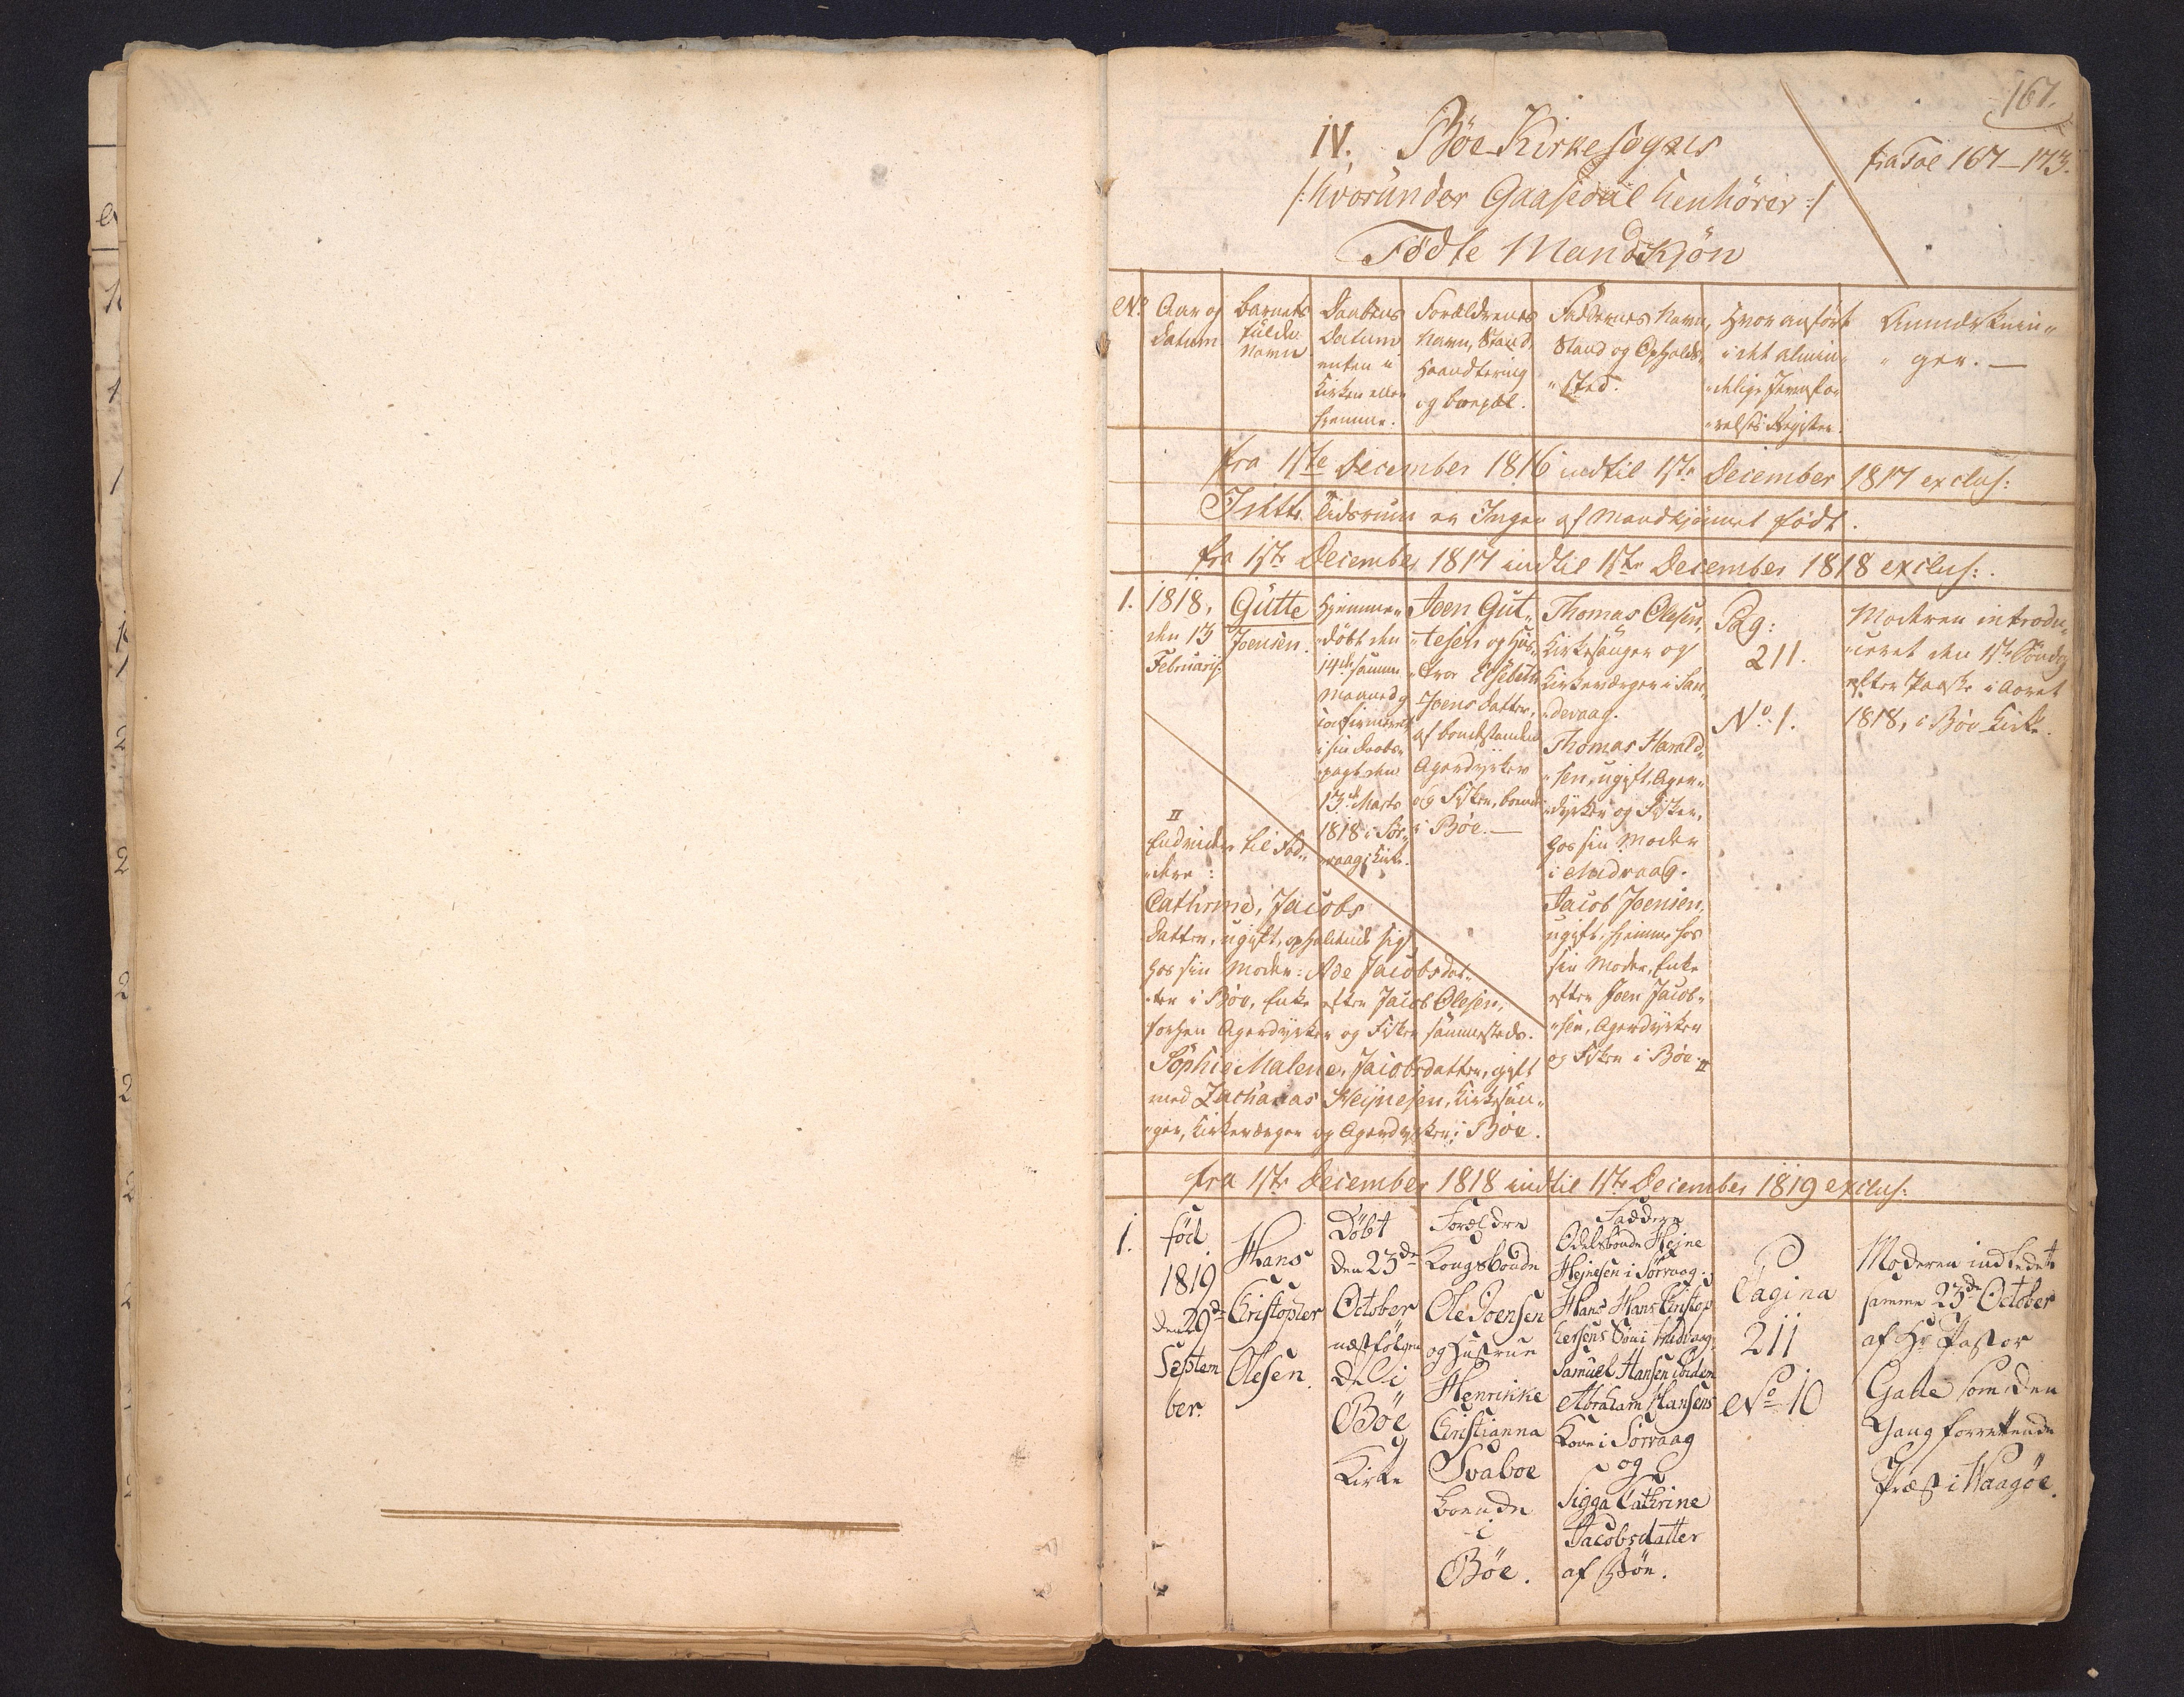 167.
IV. Bøe Kirkesogns
fra Fol 167-173.
/: hvorunder Gaasedal henhører :/
Fødte Mandkjøn
No.
Aar og
Datum
Barnets
fulde
Navn
Daabens
Datum
enten i
Kirken eller
hjemme.
Forældrenes
Navn, Stand,
Haandtering
og Boepæl.
Faddernes Navn,
Stand og Opholds„
„sted.
Hvor anført
i det almin„
„delige Jevnfø„
„relses Register.
Anmærknin„
„ger. —
fra 1ste December 1816 indtil 1ste December 1817 exclus:
I dette Tidsrum er Ingen af Mandkjønnet født.
fra 1ste December 1817 indtil 1ste December 1818 exclus:.
1.
1818,
den 13
Februarii.
Gutte
Joensen.
Hjemme„
„døbt den
14de samme
Maaned og
confirmeret
i sin Daabs„
pagt den
13de Marts
1818 i Sør„
„vaag Kirke.
Joen Gut„
„tesen og Hus„
„troe Elsebeth
Joensdatter,
af bondestanden
Agerdyrker
og Fisker, boende
i Bøe. —
Thomas Olesen,
Kirkesanger og
Kirkeværger i San„
„devaag.
Thomas Harald„
„sen, ugift, Ager„
„dyrker og Fisker,
hos sin Moder
i Midvaag.
Jacob Joensen,
ugift, hjemme hos
sin Moder, Enke
efter Joen Jacob„
„sen, Agerdyrker
og Fisker i Bøe. II
Pag:
211.
No. 1.
Moderen introdu„
„ceret den 1ste Søndag
efter Paaske i Aaret
1818, i Bøe Kirke.
II
Endvidere til Fad„
„dere:
Cathrine, Jacobs
datter, ugift, opholdende sig
hos sin Moder: Ade Jacobsdat„
„ter i Bøe, Enke efter Jacob Olesen,
forhen Agerdyrker og Fisker sammesteds.
Sophie Malene, Jacobsdatter, gift
med Zacharias Heijnesen, Kirkesan„
„ger, Kirkeværger og Agerdyrker i Bøe.
fra 1ste December 1818 indtil 1ste December 1819 exclus:
1.
fød
1819
den 29de
Septem
ber.
Hans
Christopher
Olesen.
Døbt
den 23de
October
næstfølgen
de i
Bøe
Kirke
Forældre
Kongsbonde
Ole Joensen
og Hustrue
Henrikke
Christianna
Svaboe
boende
i
Bøe.
Faddere
Odelsbonde Hejne
Hejnesen i Sørvaag.
Hans Hans Christop
hersens Søn i Midvaag,
Samuel Hansen ibidem
Abraham Hansens
Kone i Sørvaag
og
Sigga Cathrine
Jacobsdatter
af Bøe.
Pagina
211
No 10
Moderen indledet
samme 23de October
af Hr Pastor
Gad som den
Gang forrettende
Præst i Waagøe.